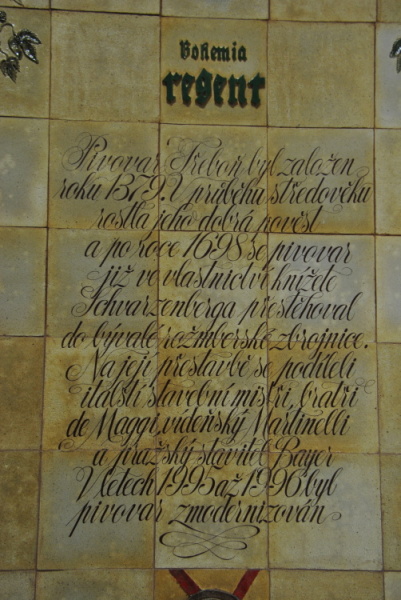 Bohemia
regent
Pivovar Třeboň byl založen
roku 1379. V průběhu středověku
rostla jeho dobrá pověst
a po roce 1698 se pivovar
již ve vlastnictví knížete
Schwarzenberga přestěhoval
do bývalé rožmberské zbrojnice.
Na její přestavbě se podíleli
italští stavební mistři, bratři
de Maggi, vídeňský Martinelli
a pražský stavitel Bayer
V letech 1995 až 1996 byl
pivovar zmodernizován